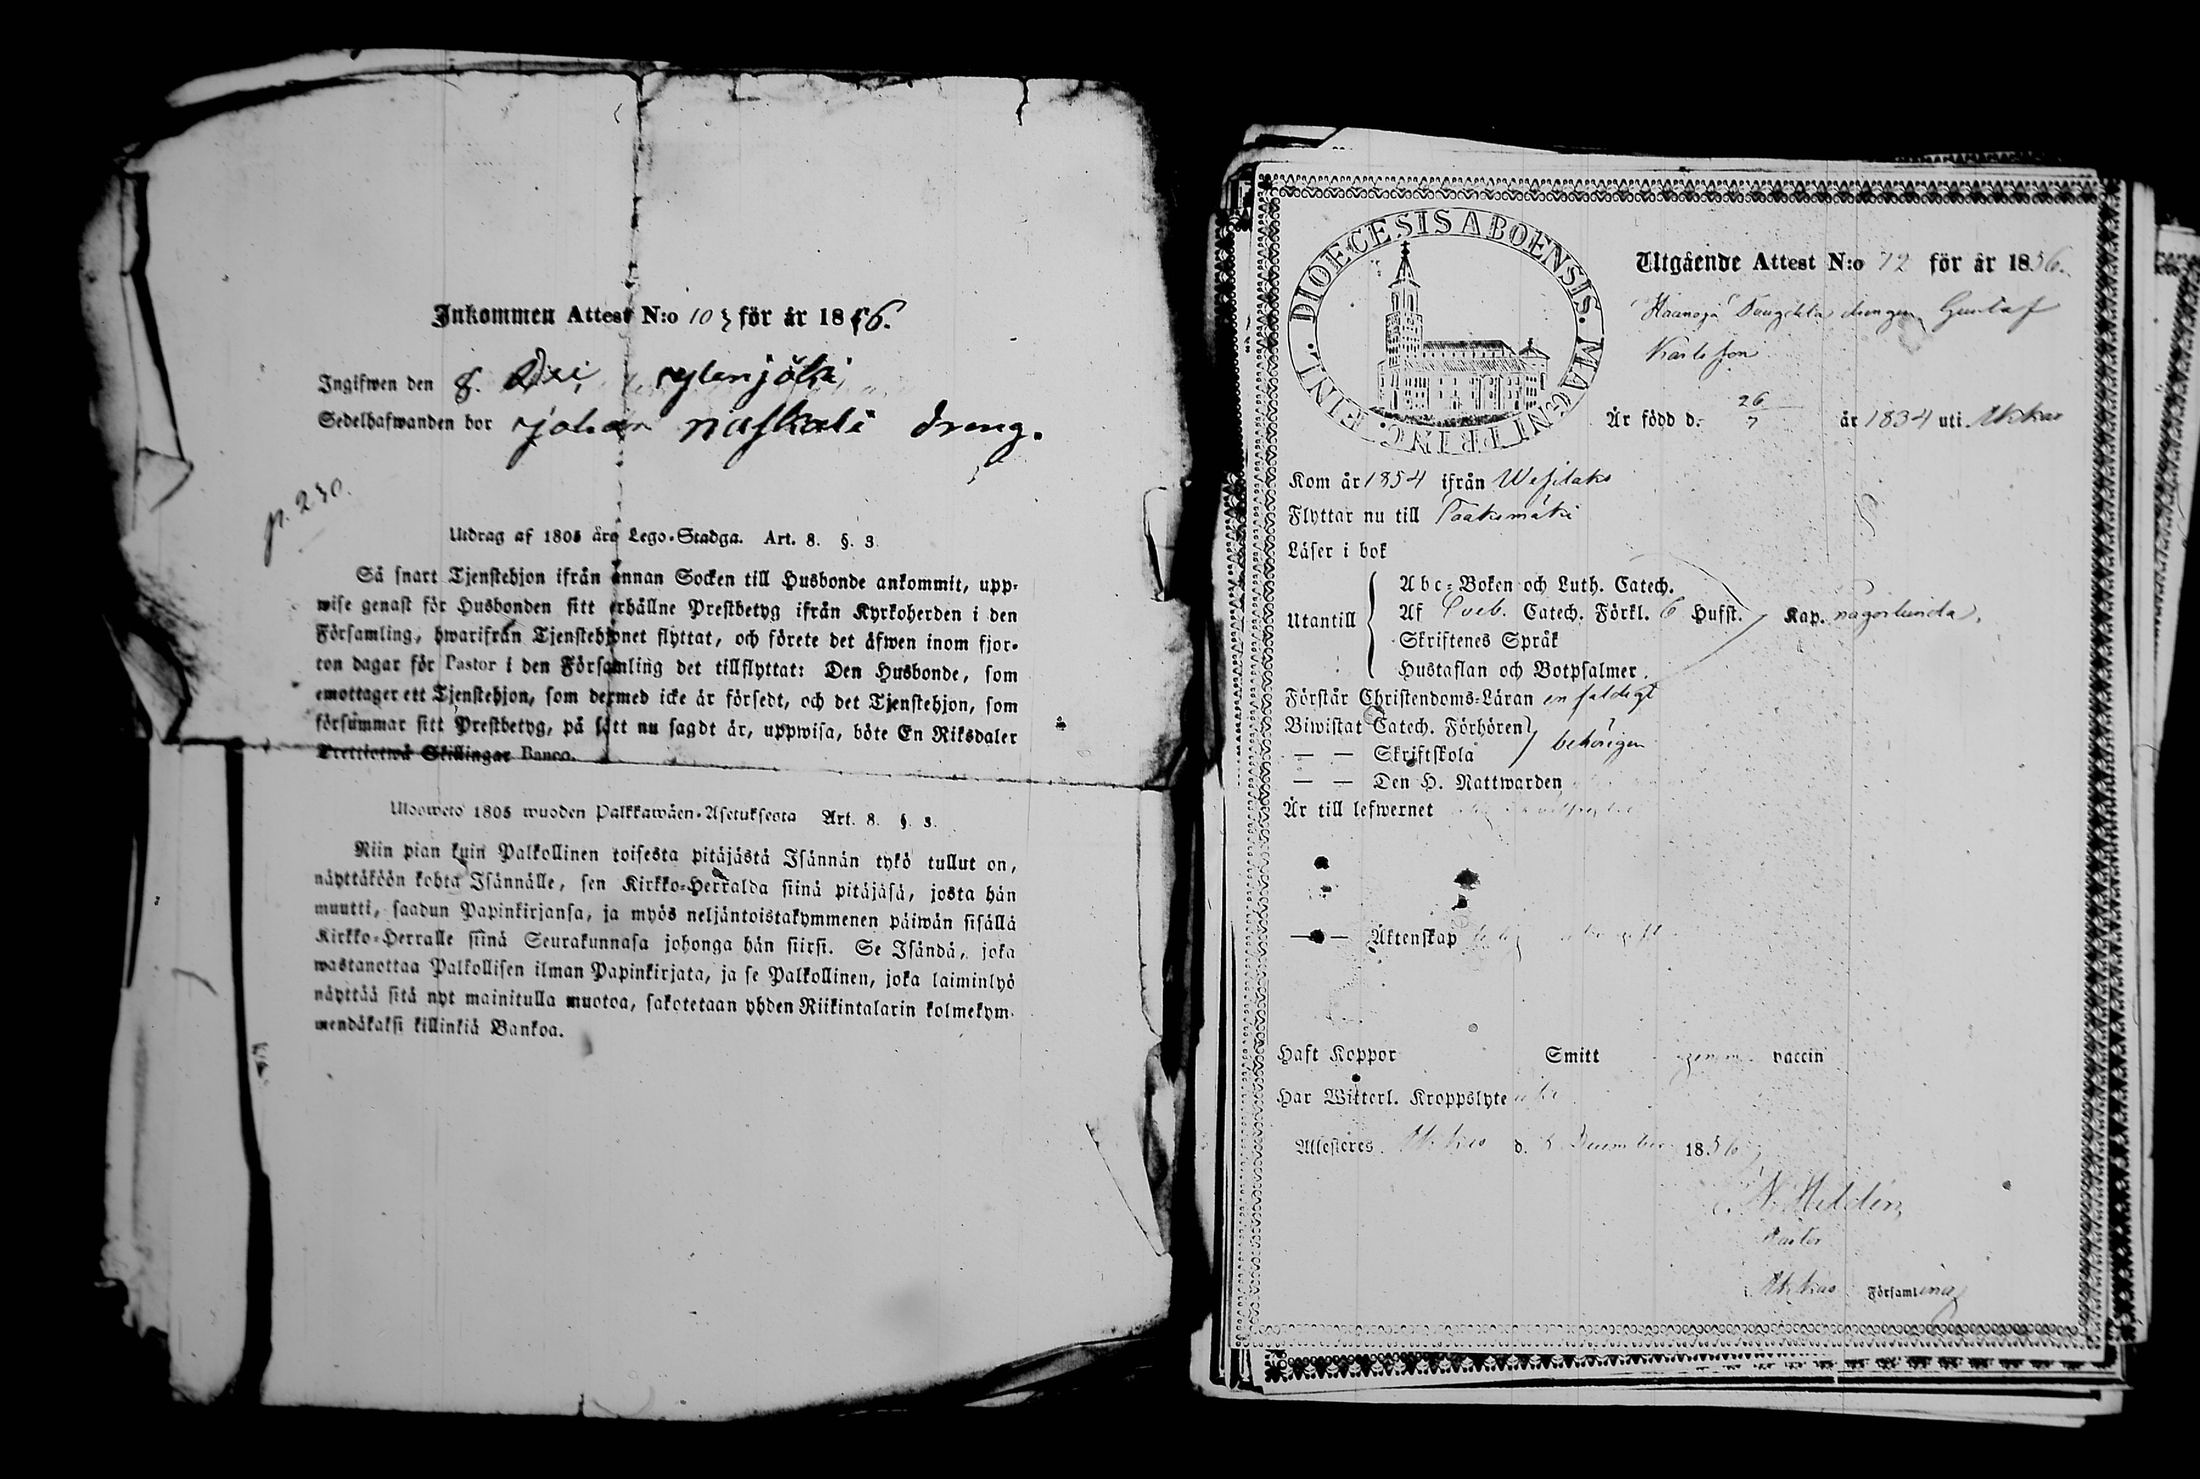 Inkommen Attest N:o 103 för år 1856.
Ingifwen den 8. Dec
Sedelhafwanden bor Johan dreng.
p. 230.
Utdrag af 1805 års Lego-Stadga. Art. 8. §. 3.
Så snart Tjenstehjon ifrån annan Socken till Husbonde ankommit, upp-
wise genast för Husbonden sitt erhållne Prestbetyg ifrån Kyrkoherden i den
Församling, hwarifrån Tjenstehjonet flyttat, och förete det äfwen inom fjor-
ton dagar för Pastor i den Församling det tillflyttat: Den Husbonde, som
emottager ett Tjenstehjon, som dermed icke är försedt, och det Tjenstehjon, som
försummar sitt Prestbetyg, på sätt nu sagdt är, uppwisa, böte En Riksdaler
Trettiotwå Skillingar Banco.
Ulosweto 1805 wuoden Palkkawäen-Asetuksesta Art. 8. §. 3.
Niin pian kuin Palkollinen toisesta pitäjästä Isännän tykö tullut on,
näyttäköön kohta Isännälle, sen Kirkko-Herralda siinä pitäjäsä, josta hän
muutti, saadun Papinkirjansa, ja myös neljäntoistakymmenen päiwän sisällä
Kirkko-Herralle siinä Seurakunnasa johonga hän siirsi. Se Isändä, joka
wastanottaa Palkollisen ilman Papinkirjata, ja se Palkollinen, joka laiminlyö
näyttää sitä nyt mainitulla muotoa, sakotetaan yhden Riikintalarin kolmekym-
mendäkaksi killinkiä Bankoa.
DIOECESIS ABOENSIS. MAGNI PRINC. FINL.
Utgående Attest N:o 72 för år 1856.
drengen Gustaf
Karlsson
Är född d. 26/7 år 1834 uti Akkas
Kom år 1854 ifrån Wesilaks
Flyttar nu till
Läser i bok
Abc-Boken och Luth. Catech.
Utantill Af Sveb. Catech. Förkl. 6 Hufst. Kap. någorlunda.
Skriftenes Språk
Hustaflan och Botpsalmer.
Förstår Christendoms-Läran enfaldigt
Biwistat Catech. Förhören
— — Skriftskola behörigen
— — Den H. Nattwarden
Är till lefwernet
— — Äktenskap
Haft Koppor Smitt genom vaccin
Har Witterl. Kroppslyte
Attesteres. Akkas d. December 1856
N. Heldén
Pastor
i Akkas Församling